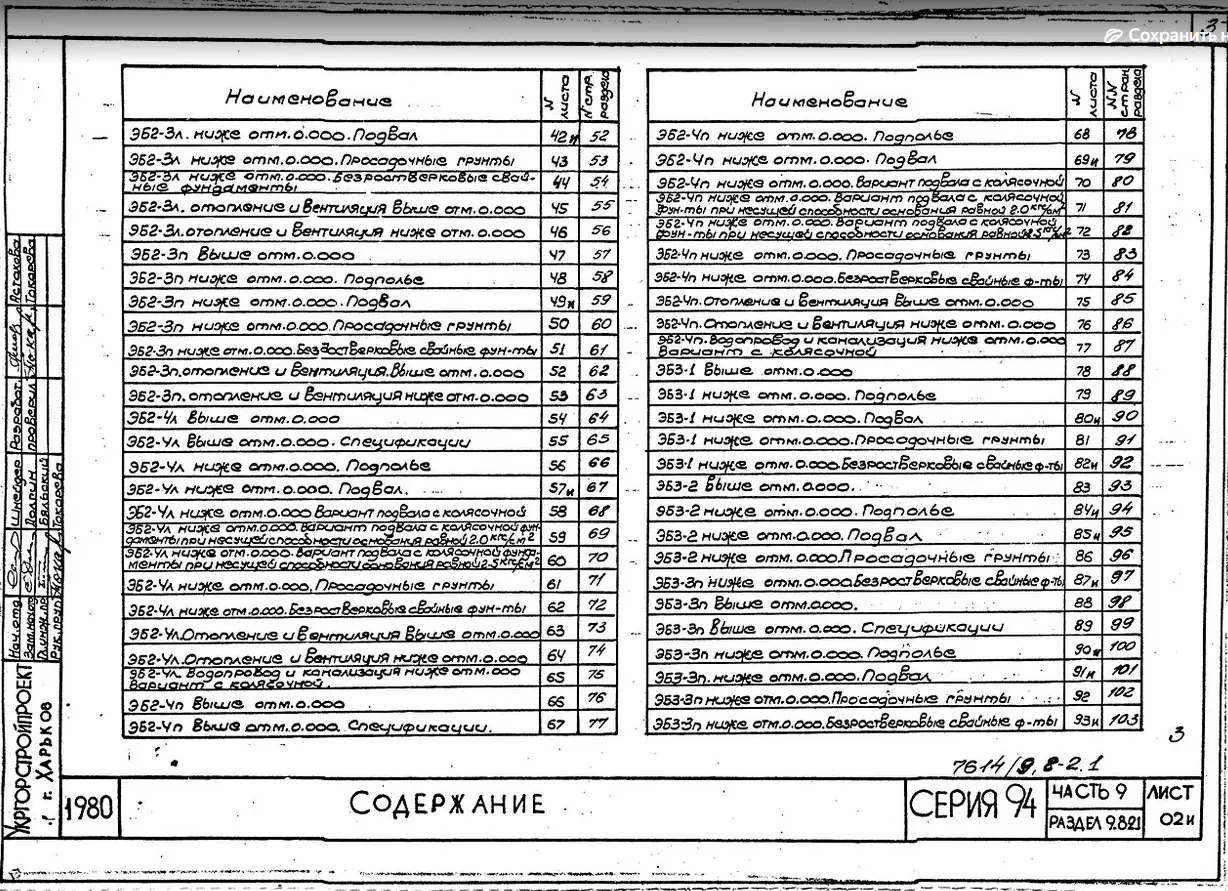 3
Сохранить н
Наименование | N листа | N стр. раздела
ЭБ2-3л. ниже отм.0.000. Подвал | 42и | 52
ЭБ2-3л ниже отм.0.000. Просадочные грунты | 43 | 53
ЭБ2-3л ниже отм.0.000. Безростверковые свай-
ные фундаменты | 44 | 54
ЭБ2-3л. отопление и вентиляция выше отм.0.000 | 45 | 55
ЭБ2-3л. отопление и вентиляция ниже отм.0.000 | 46 | 56
ЭБ2-3п выше отм.0.000 | 47 | 57
ЭБ2-3п ниже отм.0.000. Подполье | 48 | 58
ЭБ2-3п ниже отм.0.000. Подвал | 49и | 59
ЭБ2-3п ниже отм.0.000. Просадочные грунты | 50 | 60
ЭБ2-3п ниже отм.0.000. Безростверковые свайные фун-ты | 51 | 61
ЭБ2-3п. отопление и вентиляция. выше отм.0.000 | 52 | 62
ЭБ2-3п. отопление и вентиляция ниже отм.0.000 | 53 | 63
ЭБ2-4л выше отм.0.000 | 54 | 64
ЭБ2-4л выше отм.0.000. Спецификации | 55 | 65
ЭБ2-4л ниже отм.0.000. Подполье | 56 | 66
ЭБ2-4л ниже отм.0.000. Подвал. | 57и | 67
ЭБ2-4л ниже отм.0.000 Вариант подвала с колясочной | 58 | 68
ЭБ2-4л ниже отм.0.000. Вариант подвала с колясочной фун-
даменты при несущей способности основания равной 2.0 кгс/см2 | 59 | 69
ЭБ2-4л ниже отм.0.000. Вариант подвала с колясочной фунда-
менты при несущей способности основания равной 2.5 кгс/см2 | 60 | 70
ЭБ2-4л ниже отм.0.000. Просадочные грунты | 61 | 71
ЭБ2-4л ниже отм.0.000. Безростверковые свайные фун-ты | 62 | 72
ЭБ2-4л. Отопление и вентиляция выше отм.0.000 | 63 | 73
ЭБ2-4л. Отопление и вентиляция ниже отм.0.000 | 64 | 74
ЭБ2-4л. Водопровод и канализация ниже отм.000
Вариант с колясочной. | 65 | 75
ЭБ2-4п выше отм.0.000 | 66 | 76
ЭБ2-4п выше отм.0.000. Спецификации. | 67 | 77
Наименование | N листа | NN стран. раздела
ЭБ2-4п ниже отм.0.000. Подполье | 68 | 78
ЭБ2-4п ниже отм.0.000. Подвал | 69и | 79
ЭБ2-4п ниже отм.0.000. Вариант подвала с колясочной | 70 | 80
ЭБ2-4п ниже отм.0.000. Вариант подвала с колясочной
фун-ты при несущей способности основания равной 2.0 кгс/см2 | 71 | 81
ЭБ2-4п ниже отм.0.000. Вариант подвала с колясочной
фун-ты при несущей способности основания равной 2.5 кгс/см2 | 72 | 82
ЭБ2-4п ниже отм.0.000. Просадочные грунты | 73 | 83
ЭБ2-4п ниже отм.0.000. Безростверковые свайные ф-ты | 74 | 84
ЭБ2-4п. Отопление и вентиляция выше отм.0.000 | 75 | 85
ЭБ2-4п. Отопление и вентиляция ниже отм.0.000 | 76 | 86
ЭБ2-4п. Водопровод и канализация ниже отм.0.000
Вариант с колясочной | 77 | 87
ЭБ3-1 выше отм.0.000 | 78 | 88
ЭБ3-1 ниже отм.0.000. Подполье | 79 | 89
ЭБ3-1 ниже отм.0.000. Подвал | 80и | 90
ЭБ3-1 ниже отм.0.000. Просадочные грунты | 81 | 91
ЭБ3-1 ниже отм.0.000. Безростверковые свайные ф-ты | 82и | 92
ЭБ3-2 выше отм.0.000. | 83 | 93
ЭБ3-2 ниже отм.0.000. Подполье | 84и | 94
ЭБ3-2 ниже отм.0.000. Подвал | 85и | 95
ЭБ3-2 ниже отм.0.000. Просадочные грунты | 86 | 96
ЭБ3-3п ниже отм.0.000. Безростверковые свайные ф-ты | 87и | 97
ЭБ3-3п выше отм.0.000. | 88 | 98
ЭБ3-3п выше отм.0.000. Спецификации | 89 | 99
ЭБ3-3п ниже отм.0.000. Подполье | 90и | 100
ЭБ3-3п. ниже отм.0.000. Подвал | 91и | 101
ЭБ3-3п ниже отм.0.000. Просадочные грунты | 92 | 102
ЭБ3-3п ниже отм.0.000. Безростверковые свайные ф-ты | 93и | 103
3
7614/9, 8-2.1
Нач.отд. Шнейдер
Зам.начотд Долгин
Бяльский
Рук.груп Токарева
Разработ. Астахова
проверил Токарева
УКРГОРСТРОЙПРОЕКТ
г. ХАРЬКОВ
1980
СОДЕРЖАНИЕ
СЕРИЯ 94
ЧАСТЬ 9
РАЗДЕЛ 9.8-2.1
ЛИСТ
02и